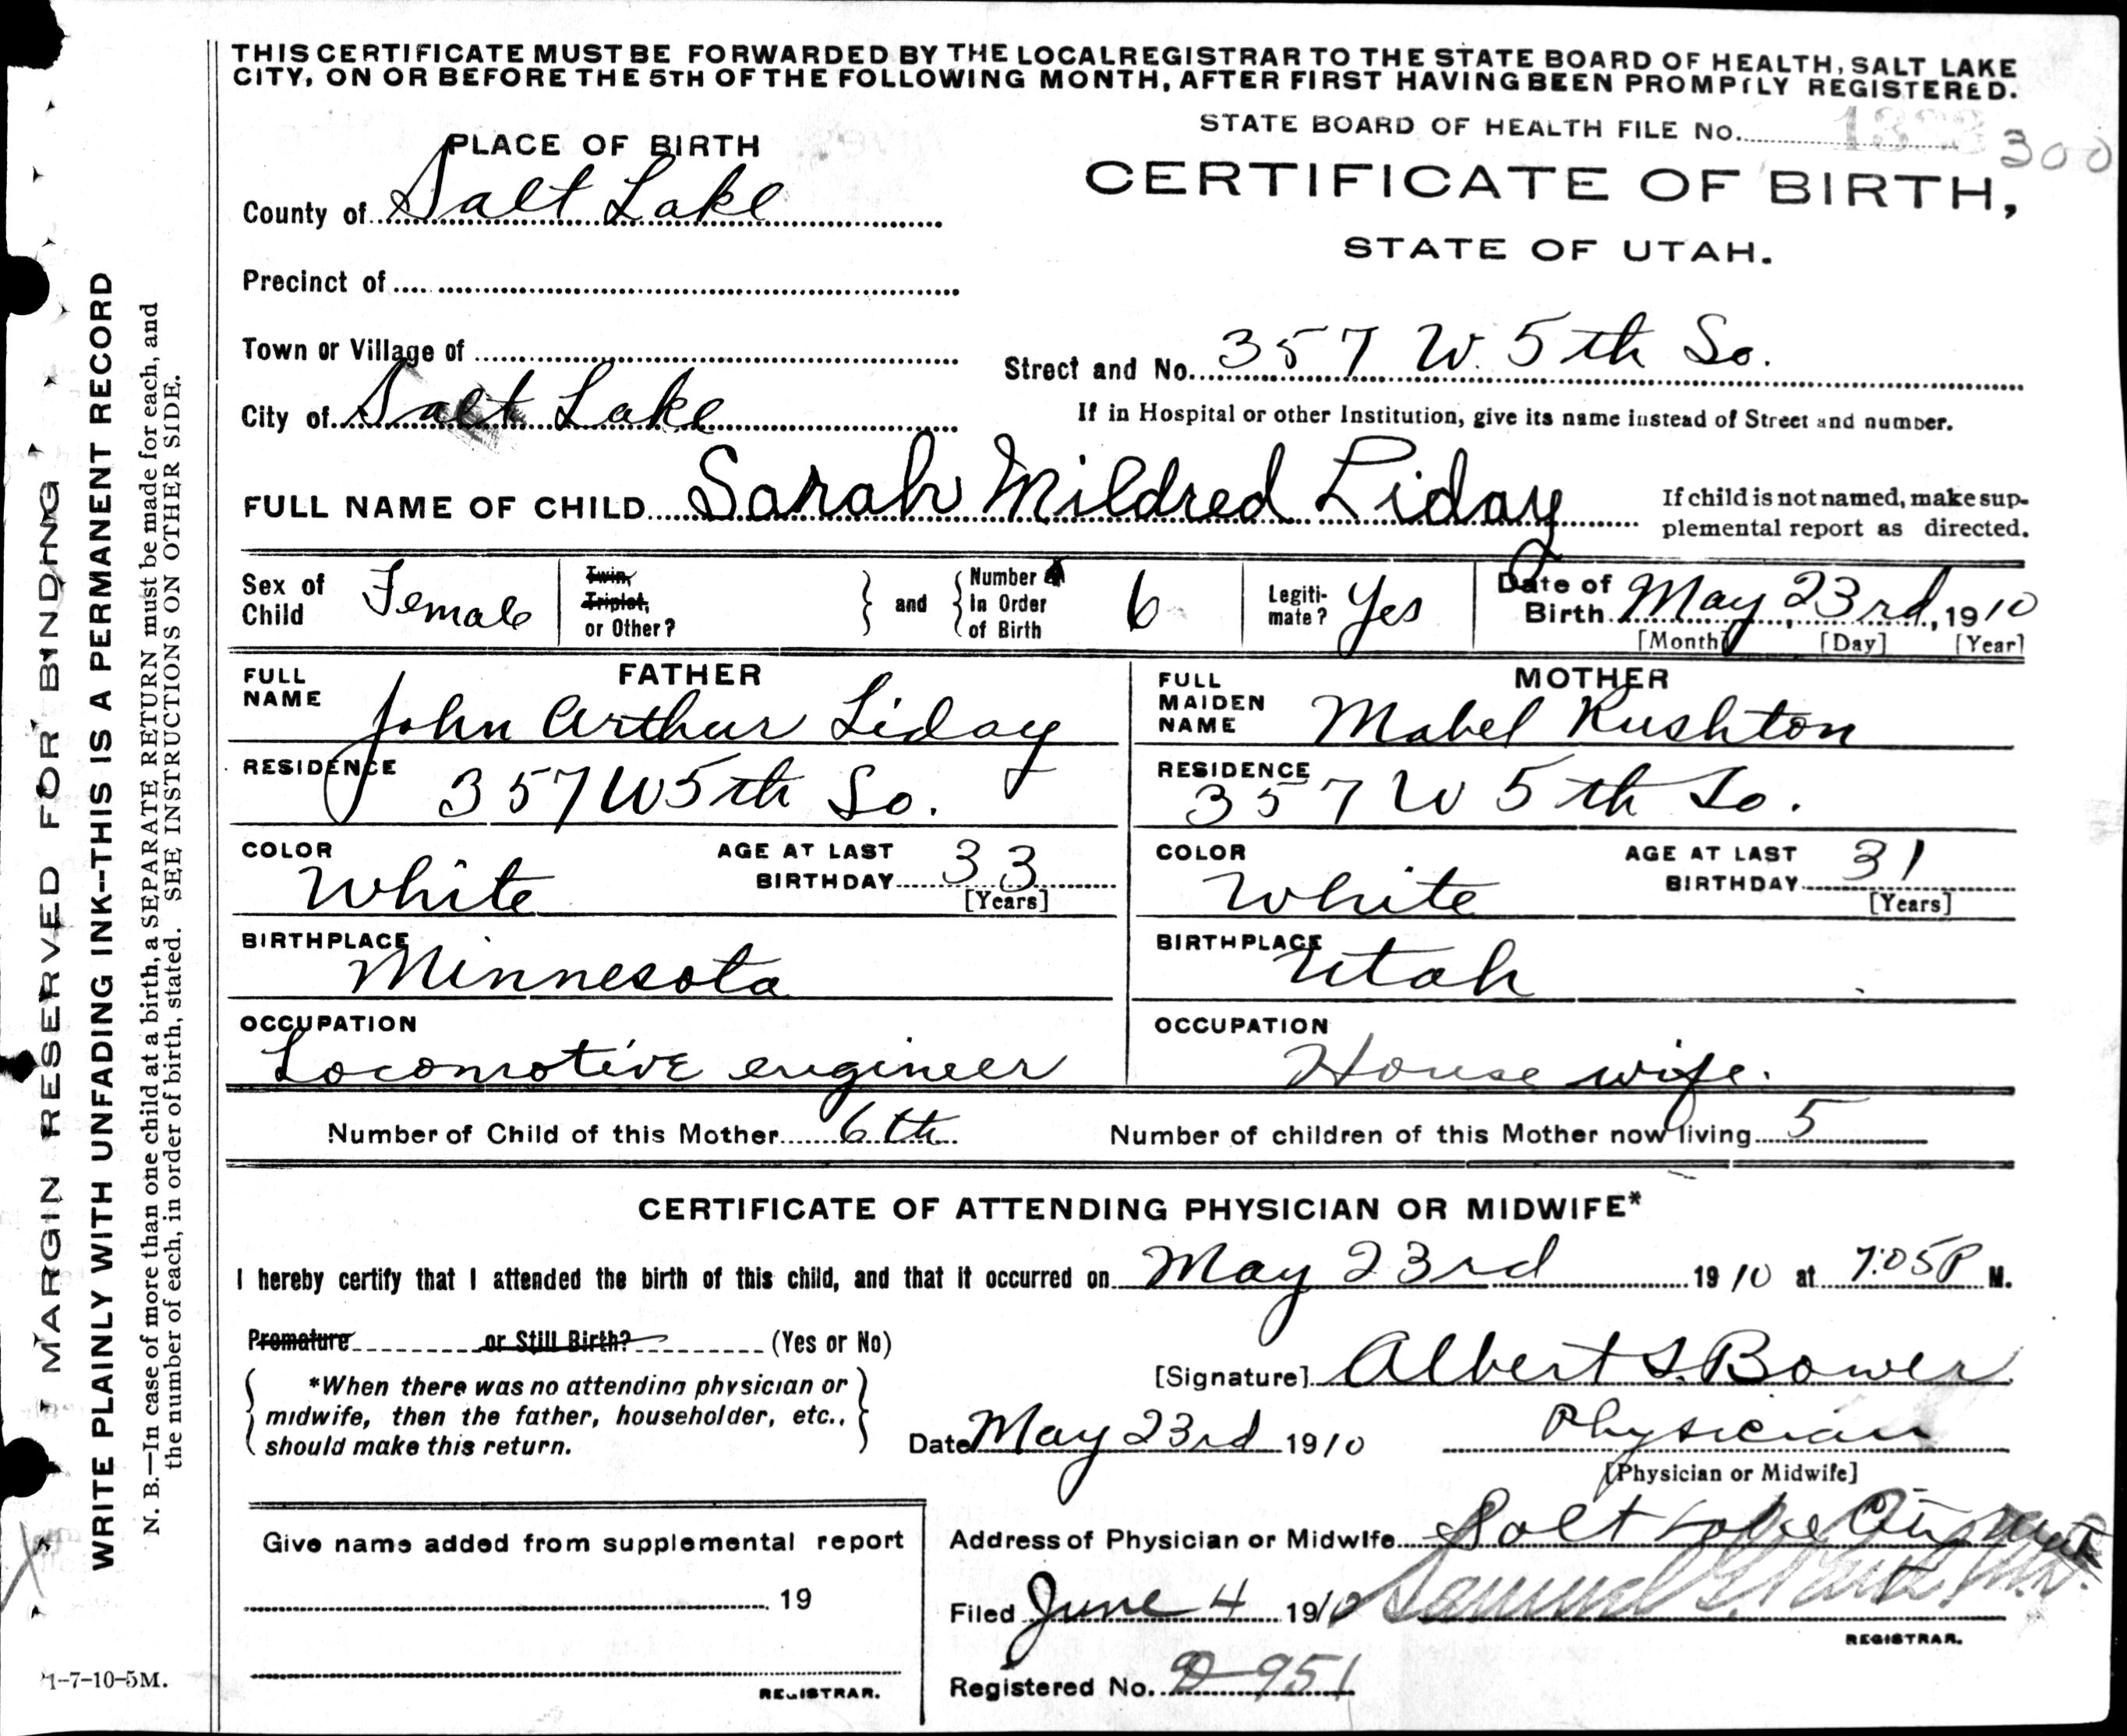 THIS CERTIFICATE MUST BE FORWARDED BY THE LOCAL REGISTRAR TO THE STATE BOARD OF HEALTH, SALT LAKE
CITY, ON OR BEFORE THE 5TH OF THE FOLLOWING MONTH, AFTER FIRST HAVING BEEN PROMPTLY REGISTERED.
STATE BOARD OF HEALTH FILE No. 300
CERTIFICATE OF BIRTH,
STATE OF UTAH.
PLACE OF BIRTH
County of Salt Lake
Precinct of
Town or Village of
City of Salt Lake
Street and No. 357 W. 5th So.
If in Hospital or other Institution, give its name instead of Street and number.
FULL NAME OF CHILD Sarah Mildred Liday
If child is not named, make sup-
plemental report as directed.
Sex of Child Female
Twin, Triplet, or Other?
and
Number In Order of Birth 6
Legiti-mate? Yes
Date of Birth May 23rd, 1910
[Month] [Day] [Year]
FATHER
FULL NAME John Arthur Liday
RESIDENCE 357 W 5th So.
COLOR White
AGE AT LAST BIRTHDAY 33 [Years]
BIRTHPLACE Minnesota
OCCUPATION Locomotive engineer
MOTHER
FULL MAIDEN NAME Mabel Rushton
RESIDENCE 357 W 5th So.
COLOR White
AGE AT LAST BIRTHDAY 31 [Years]
BIRTHPLACE Utah
OCCUPATION House wife.
Number of Child of this Mother 6th
Number of children of this Mother now living 5
CERTIFICATE OF ATTENDING PHYSICIAN OR MIDWIFE*
I hereby certify that I attended the birth of this child, and that it occurred on May 23rd 1910 at 7:05 P M.
Premature or Still Birth? (Yes or No)
*When there was no attending physician or
midwife, then the father, householder, etc.,
should make this return.
[Signature] Albert S. Bower
Date May 23rd 1910
Physician
[Physician or Midwife]
Address of Physician or Midwife Salt Lake City Utah
Filed June 4 1910 Samuel G. Paul M.D.
REGISTRAR.
Registered No. 951
Give name added from supplemental report
19
REGISTRAR.
MARGIN RESERVED FOR BINDING
WRITE PLAINLY WITH UNFADING INK--THIS IS A PERMANENT RECORD
N. B.—In case of more than one child at a birth, a SEPARATE RETURN must be made for each, and
the number of each, in order of birth, stated. SEE INSTRUCTIONS ON OTHER SIDE.
1-7-10-5M.